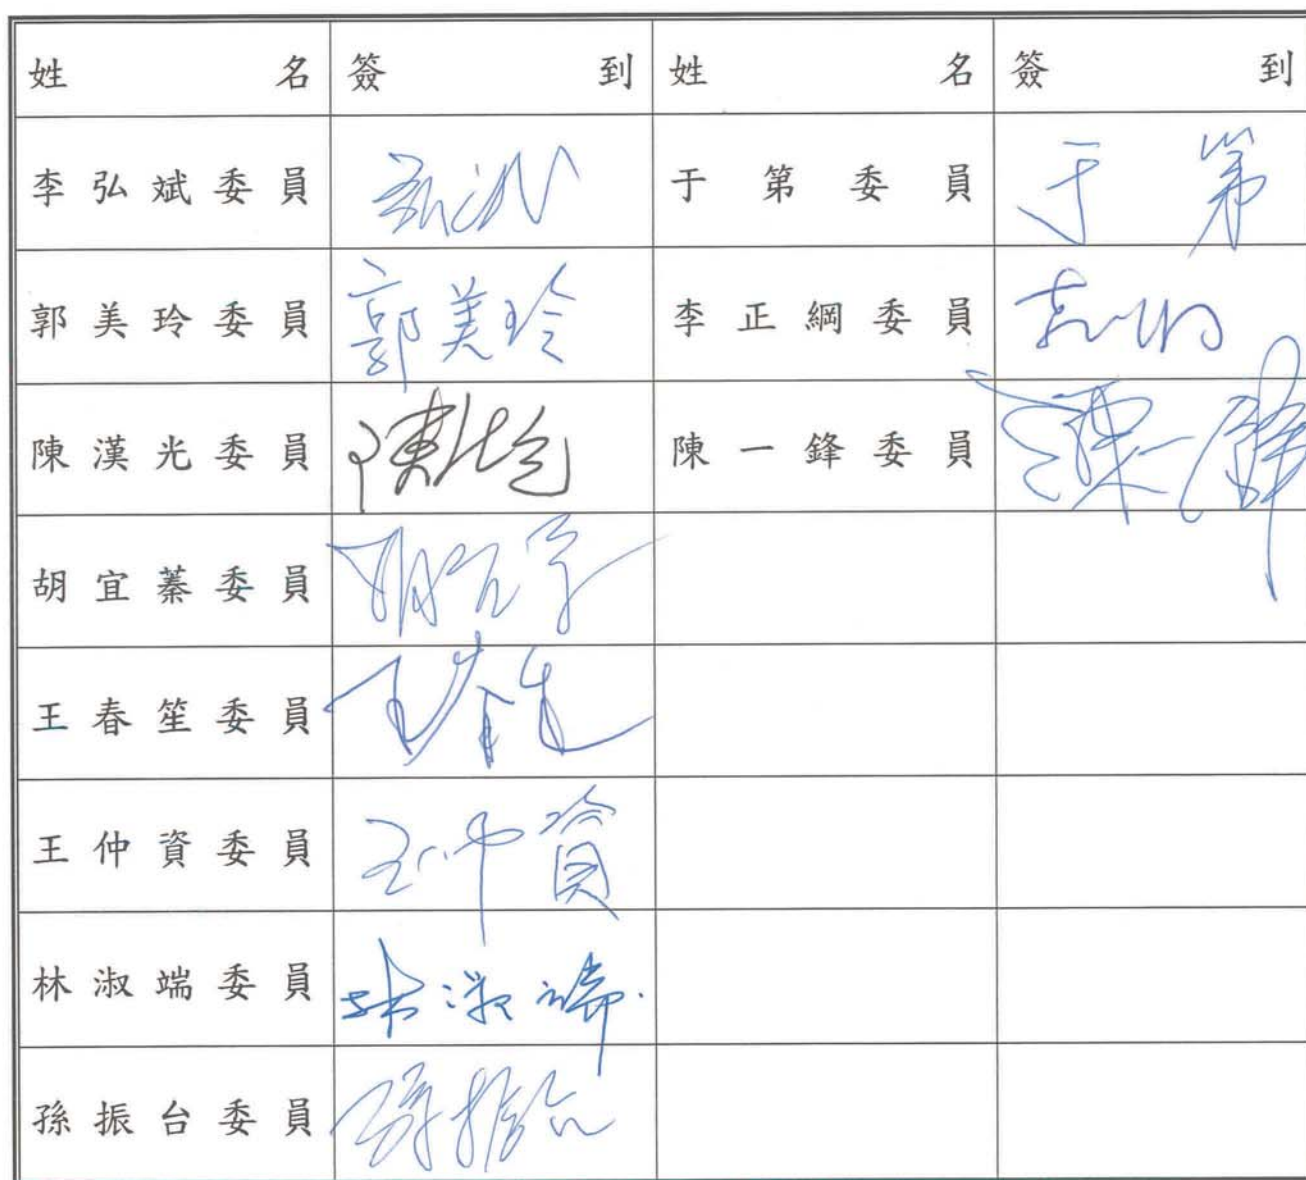 姓名 簽到 姓名 簽到
李弘斌委員 于第委員 于第
郭美玲委員 郭美玲 李正綱委員
陳漢光委員 陳一鋒委員 陳一鋒
胡宜蓁委員
王春笙委員
王仲資委員 王仲資
林淑端委員 林淑端
孫振台委員 孫振台